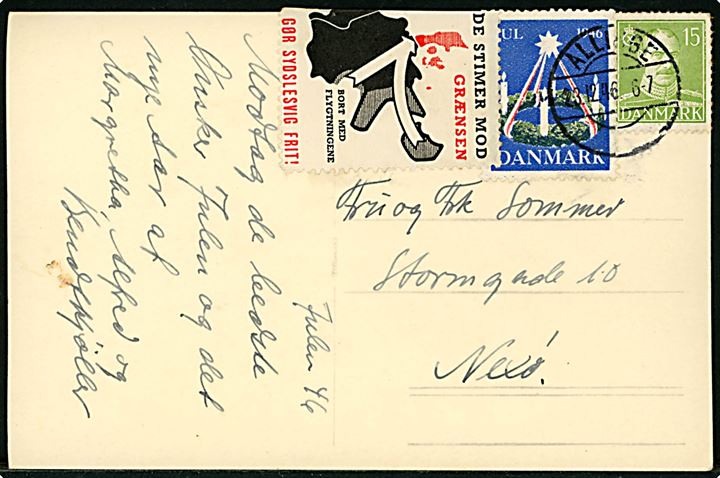 DE STIMER MOD
GRÆNSEN
BORT MED
FLYGTNINGENE
GØR SYDSLESVIG FRIT!
JUL 1946
DANMARK
15
DANMARK
ALLINGE
23.12.46. 6-7
Julen 46
Modtag de bedste
Ønsker Julen og det
nye Aar af
Margretha, Alfred og
Fru og Frk Sommer
Stormgade 10
Nexø.